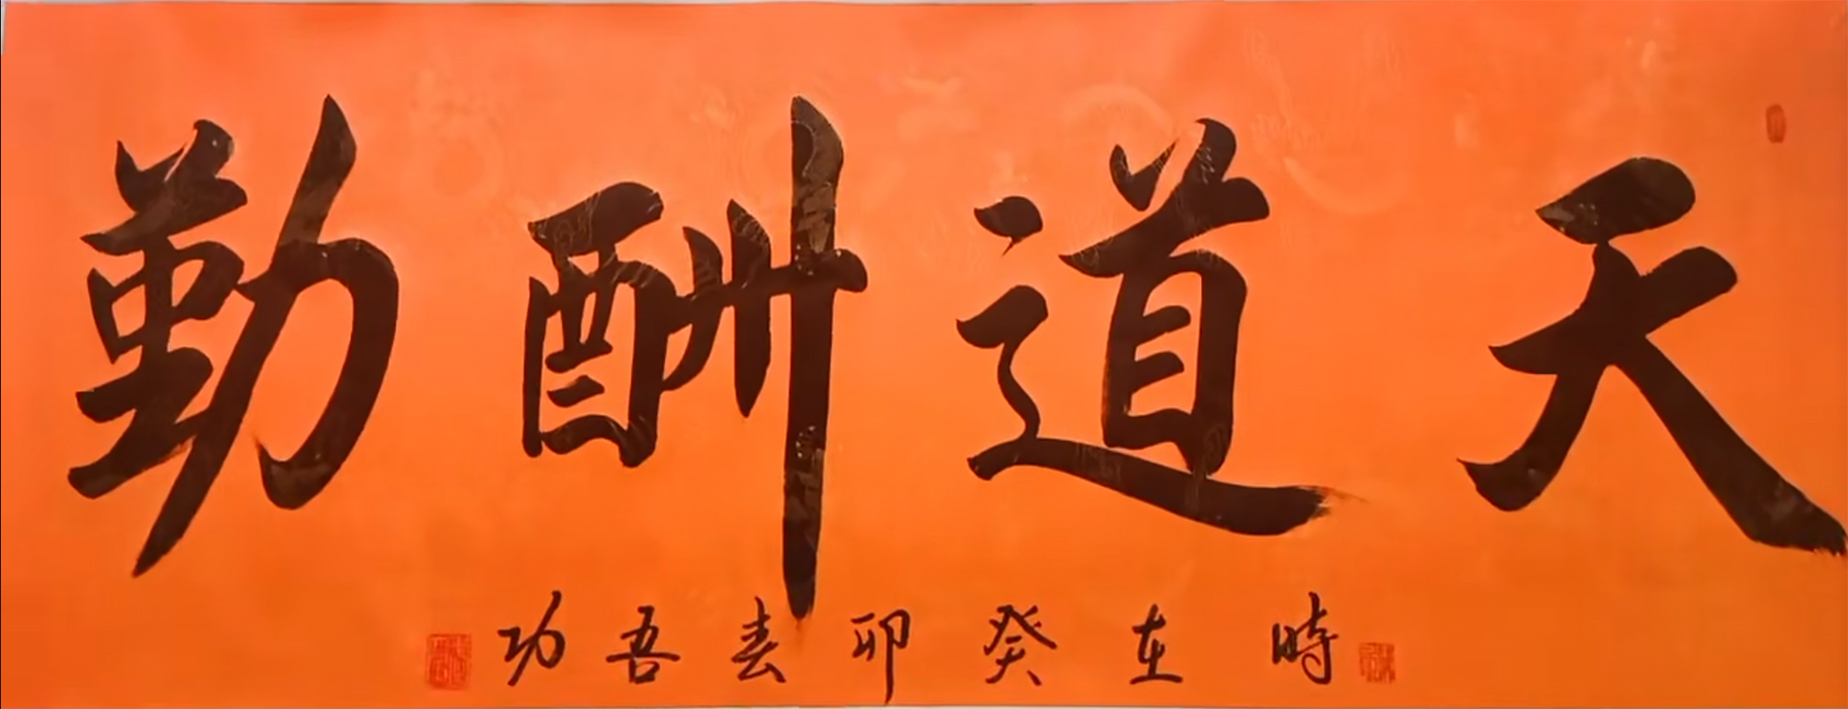 天道酬勤
時在癸卯春吾功